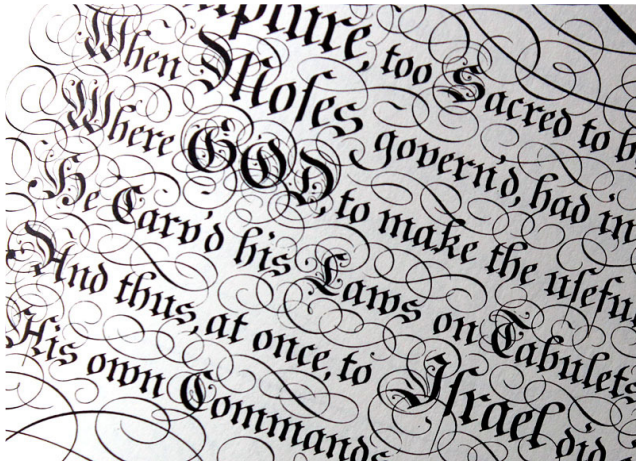 too Sacred to b
When Moſes govern'd, had in
Where GOD, to make the uſeful
He Carv'd his Laws on Tabulets
And thus, at once, to Iſrael did
His own Commands